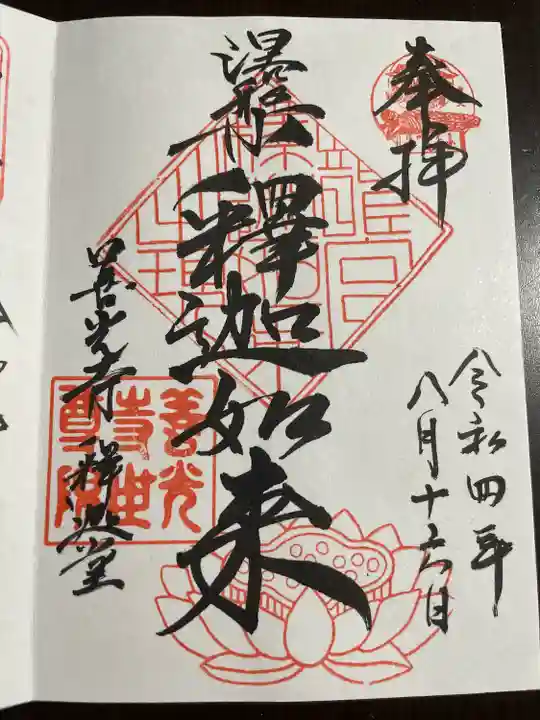 奉拝
令和四年
八月十六日
涅槃釋迦如来
善光寺釋迦堂
善光
寺世
尊院